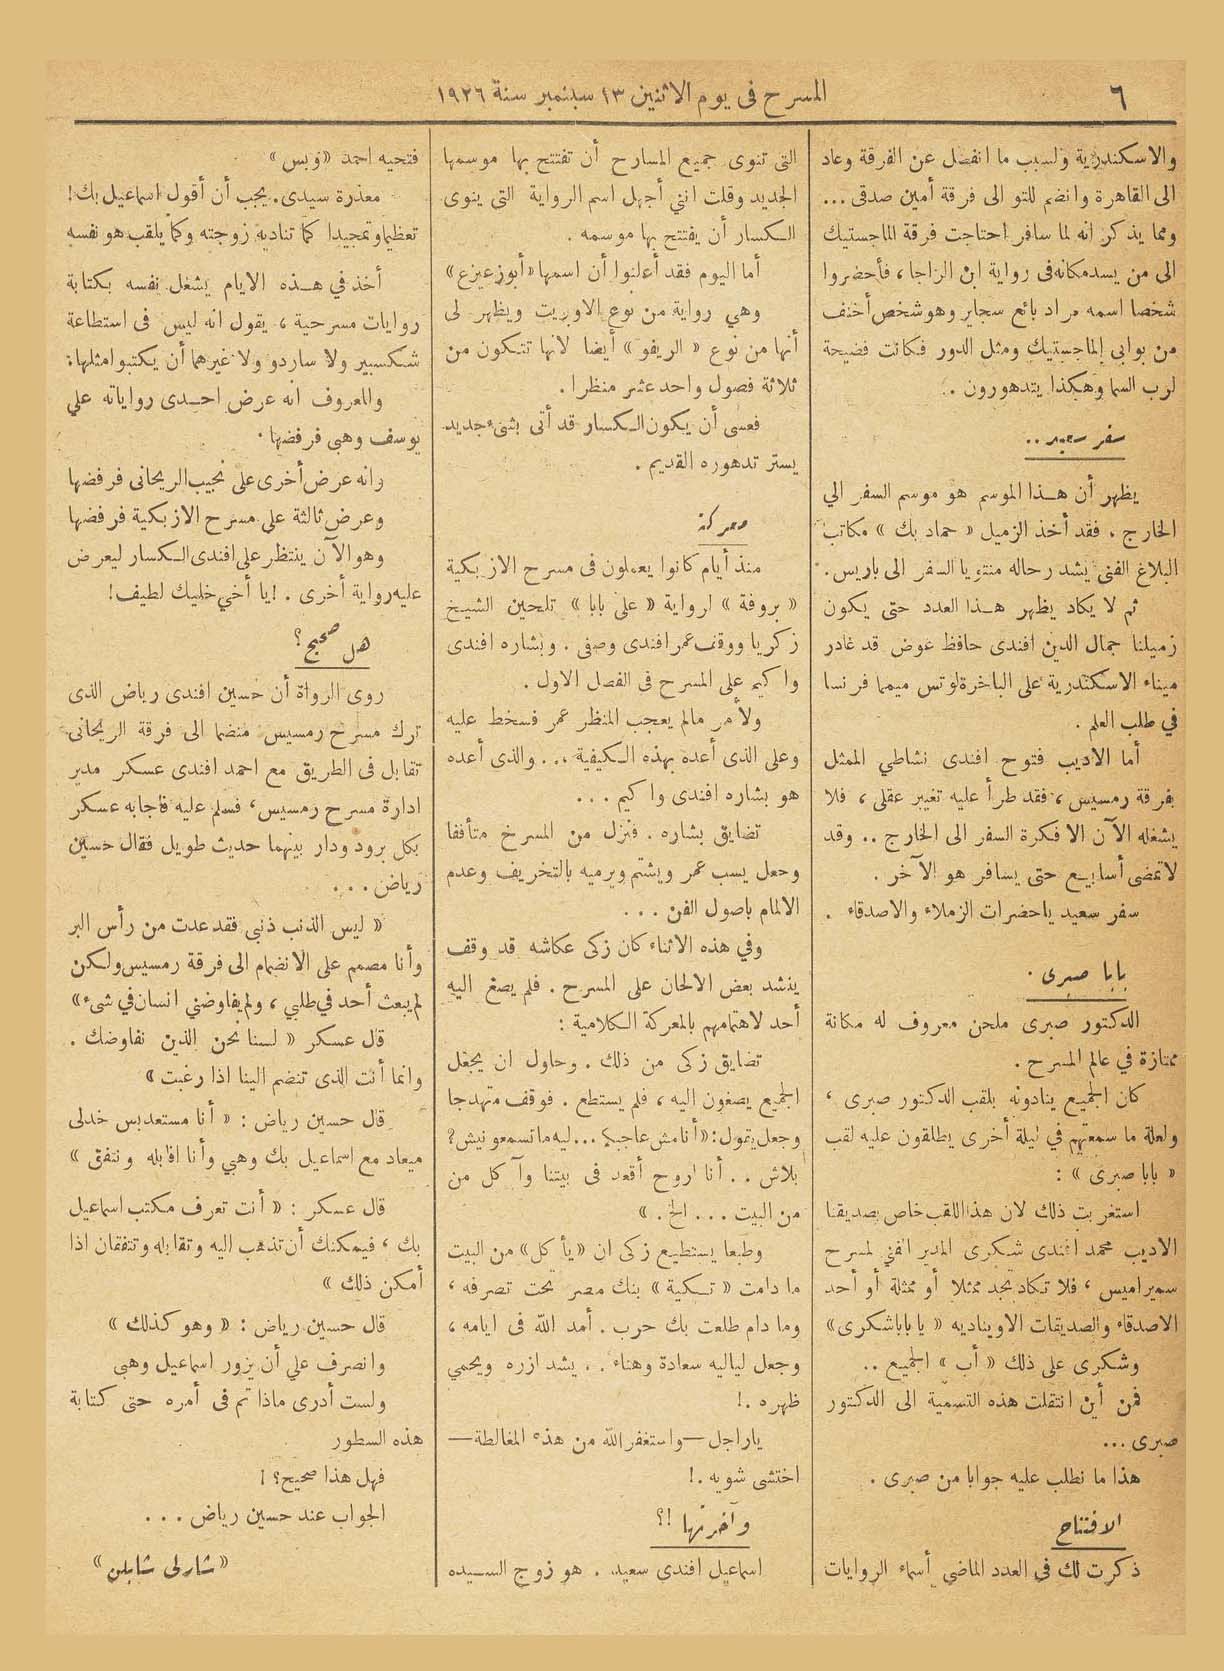 ٦
المسرح فى يوم الاثنين ١٣ سبتمبر سنة ١٩٢٦
والاسكندرية ولسبب ما انفصل عن الفرقة وعاد
الى القاهرة وانضم للتو الى فرقة أمين صدقى ...
ومما يذكر انه لما سافر احتاجت فرقة الماجستيك
الى من يسد مكانه فى رواية ابن الراجا، فأحضروا
شخصا اسمه مراد بائع سجاير وهو شخص أخنف
من بوابى الماجستيك ومثل الدور فكانت فضيحة
لرب السما وهكذا يتدهورون .
سفر سعيد ..
يظهر أن هذا الموسم هو موسم السفر الي
الخارج . فقد أخذ الزميل « حماد بك » مكاتب
البلاغ الفنى يشد رحاله منتويا السفر الى باريس .
ثم لا يكاد يظهر هذا العدد حتى يكون
زميلنا جمال الدين افندى حافظ عوض قد غادر
ميناء الاسكندرية على الباخرة لوتس ميمما فرنسا
في طلب العلم .
أما الاديب فتوح افندى نشاطي الممثل
بفرقة رمسيس ، فقد طرأ عليه تغيير عقلى ، فلا
يشغله الآن الا فكرة السفر الى الخارج .. وقد
لا تمضى أسابيع حتى يسافر هو الآخر .
سفر سعيد ياحضرات الزملاء والاصدقاء .
بابا صبرى .
الدكتور صبرى ملحن معروف له مكانة
ممتازة في عالم المسرح .
كان الجميع ينادونه بلقب الدكتور صبرى ،
ولعلة ما سمعتهم في ليلة أخرى يطلقون عليه لقب
« بابا صبرى » :
استغربت ذلك لان هذا اللقب خاص بصديقنا
الاديب محمد افندى شكرى المدير الفني لمسرح
سميراميس ، فلا تكاد تجد ممثلا أو ممثلة أو أحد
الاصدقاء والصديقات الا ويناديه « يا بابا شكرى »
وشكرى على ذلك « أب » الجميع ..
فمن أين انتقلت هذه التسمية الى الدكتور
صبرى ...
هذا ما نطلب عليه جوابا من صبرى .
الافتتاح
ذكرت لك في العدد الماضي أسماء الروايات
التى تنوى جميع المسارح أن تفتتح بها موسمها
الجديد وقلت انني أجهل اسم الرواية التي ينوى
الكسار أن يفتتح بها موسمه .
أما اليوم فقد أعلنوا أن اسمها «أبو زعيزع»
وهي رواية من نوع الاوريت ويظهر لى
أنها من نوع « الريفو » أيضا لانها تتكون من
ثلاثة فصول واحد عشر منظرا .
فعسى أن يكون الكسار قد أتى بشىء جديد
يستر تدهوره القديم .
معركة
منذ أيام كانوا يعملون فى مسرح الازبكية
« بروفة » لرواية « على بابا » تلحين الشيخ
زكريا ووقف عمر افندى وصفى . وبشاره افندى
واكيم على المسرح فى الفصل الاول .
ولأمر مالم يعجب المنظر عمر فسخط عليه
وعلى الذى أعده بهذه الكيفية ... والذى أعده
هو بشاره افندى واكيم ...
تضايق بشاره . فنزل من المسرح متأففا
وجعل يسب عمر ويشتم ويرميه بالتخريف وعدم
الالمام باصول الفن ...
وفي هذه الاثناء كان زكى عكاشه قد وقف
ينشد بعض الالحان على المسرح . فلم يصغ اليه
أحد لاهتمامهم بالمعركة الكلامية :
تضايق زكى من ذلك . وحاول ان يجعل
الجميع يصغون اليه ، فلم يستطع . فوقف متهدجا
وجعل يقول : « أنا مش عاجبكم ... ليه ما تسمعونيش؟
بلاش .. أنا اروح أقعد فى بيتنا وآكل من
من البيت ... الخ . »
وطبعا يستطيع زكى ان « يأكل » من البيت
ما دامت « تكية » بنك مصر تحت تصرفه ،
وما دام طلعت بك حرب . أمد الله فى ايامه ،
وجعل لياليه سعادة وهناء .. يشد ازره ويحمي
ظهره .!
ياراجل — واستغفر الله من هذه المغالطة —
اختشى شويه .!
وآخرتها !؟
اسماعيل افندى سعيد . هو زوج السيده
فتحيه احمد «وبس»
معذرة سيدى . يجب أن أقول اسماعيل بك !
تعظيما وتمجيدا كما تناديه زوجته وكما يلقب هو نفسه
أخذ في هذه الايام يشغل نفسه بكتابة
روايات مسرحية ، يقول انه ليس فى استطاعة
شكسبير ولا ساردو ولا غيرهما أن يكتبوا مثلها :
والمعروف انه عرض احدى رواياته علي
يوسف وهبى فرفضها .
وانه عرض أخرى على نجيب الريحانى فرفضها
وعرض ثالثة على مسرح الازبكية فرفضها
وهو الآن ينتظر على افندى الكسار ليعرض
عليه رواية أخرى . ! يا أخي خليك لطيف !
هل صحيح ؟
روى الرواة أن حسين افندى رياض الذى
ترك مسرح رمسيس منضما الى فرقة الريحانى
تقابل فى الطريق مع احمد افندى عسكر مدير
ادارة مسرح رمسيس ، فسلم عليه فاجابه عسكر
بكل برود ودار بينهما حديث طويل فقال حسين
رياض ...
« ليس الذنب ذنبى فقد عدت من رأس البر
وأنا مصمم على الانضمام الى فرقة رمسيس ولكن
لم يبعث أحد في طلبي ، ولم يفاوضني انسان في شىء »
قال عسكر « لسنا نحن الذين نفاوضك .
وانما أنت الذى تنضم الينا اذا رغبت »
قال حسين رياض : « أنا مستعد بس خدلى
ميعاد مع اسماعيل بك وهبي وأنا اقابله ونتفق »
قال عسكر : « أنت تعرف مكتب اسماعيل
بك ، فيمكنك أن تذهب اليه وتقابله وتتفقان اذا
أمكن ذلك »
قال حسين رياض : « وهو كذلك »
وانصرف علي أن يزور اسماعيل وهبى
ولست أدرى ماذا تم فى أمره حتى كتابة
هذه السطور
فهل هذا صحيح ؟ !
الجواب عند حسين رياض ...
« شارلى شابلن »